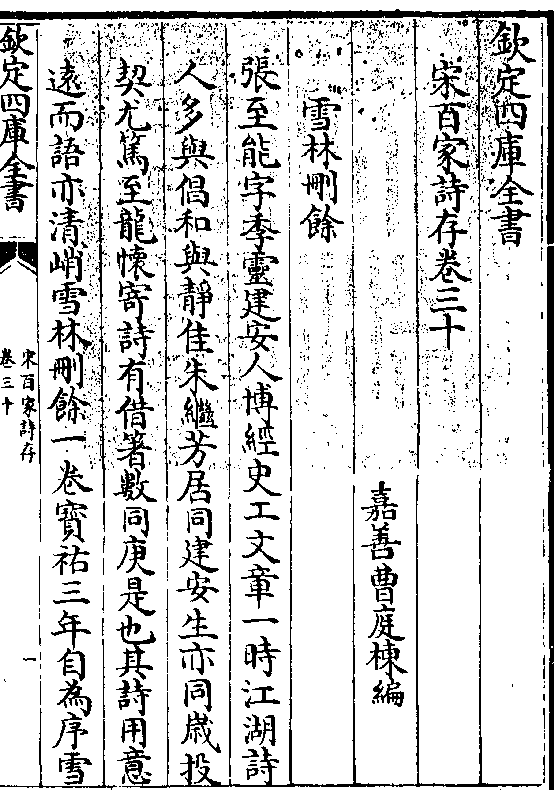 欽定四庫全書
宋百家詩存卷三十
嘉善曹庭棟編
雪林刪餘
張至能字季靈建安人博經史工文章一時江湖詩
人多與倡和與靜佳朱繼芳居同建安生亦同歲投
契尤篤至龍懷寄詩有借箸數同庚是也其詩用意
遠而語亦清峭雪林刪餘一卷寶祐三年自為序雪
欽定四庫全書
宋百家詩存
卷三十
一